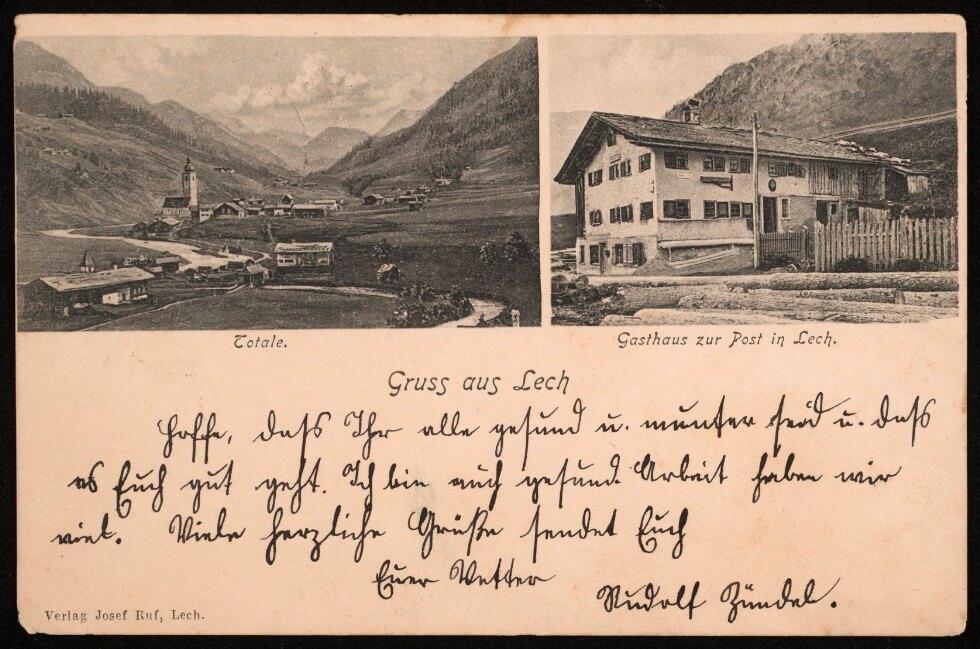 Totale.
Gasthaus zur Post in Lech.
Gruss aus Lech
Hoffe, dass Ihr alle gesund u. munter seid u. dass
es Euch gut geht. Ich bin auch gesund. Arbeit haben wir
viel. Viele herzliche Grüße sendet Euch
Euer Vetter
Rudolf Zündel.
Verlag Josef Ruf, Lech.